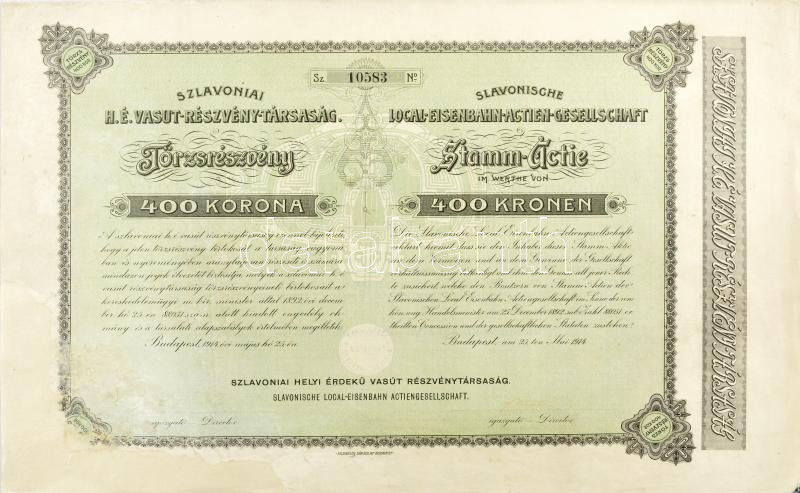 TÖRZS
RÉSZVÉNY
400 KOR
TÖRZS
RÉSZVÉNY
400 KOR
Sz. 10583 No.
SZLAVONIAI
H. É. VASUT-RÉSZVÉNY-TÁRSASÁG.
Törzsrészvény
400 KORONA
A szlavoniai h. é. vasút részvénytársaság ezennel kijelenti,
hogy a jelen törzsrészvény birtokosát a társaság vagyoná-
ban és nyereményében aránylagosan részesíti s számára
mindazon jogok élvezetét biztosítja, melyek a szlavoniai h. é.
vasút részvénytársaság törzsrészvényeinek birtokosait a
kereskedelemügyi m. kir. minister által 1892 évi decem-
ber hó 25-én 88051 sz. a. alatt kiadott engedély ok-
mány és a társulati alapszabályok értelmében megilletik.
Budapest, 1914. évi május hó 25-én.
SLAVONISCHE
LOCAL-EISENBAHN-ACTIEN-GESELLSCHAFT
Stamm-Actie
IM WERTHE VON
400 KRONEN
Die Slavonische Local Eisenbahn Actiengesellschaft
erklärt hiemit dass sie den Inhaber dieser Stamm-Actie
an dem Vermögen und an dem Gewinne der Gesellschaft
verhältnissmässig betheiligt und ihm den Genuss all jener Rech-
te zusichert welche den Besitzern von Stamm-Actien der
Slavonischen Local Eisenbahn Actiengesellschaft im Sinne der vom
kön. ung. Handelsminister am 25. December 1892 sub Zahl 88051 er-
theilten Concession und der gesellschaftlichen Statuten zustehen.
Budapest, am 25-ten Mai 1914.
SZLAVONIAI HELYI ÉRDEKŰ VASÚT RÉSZVÉNYTÁRSASÁG.
SLAVONISCHE LOCAL-EISENBAHN ACTIENGESELLSCHAFT.
igazgató — Director
igazgató — Director
400 KOR
RÉSZVÉNY
TÖRZS